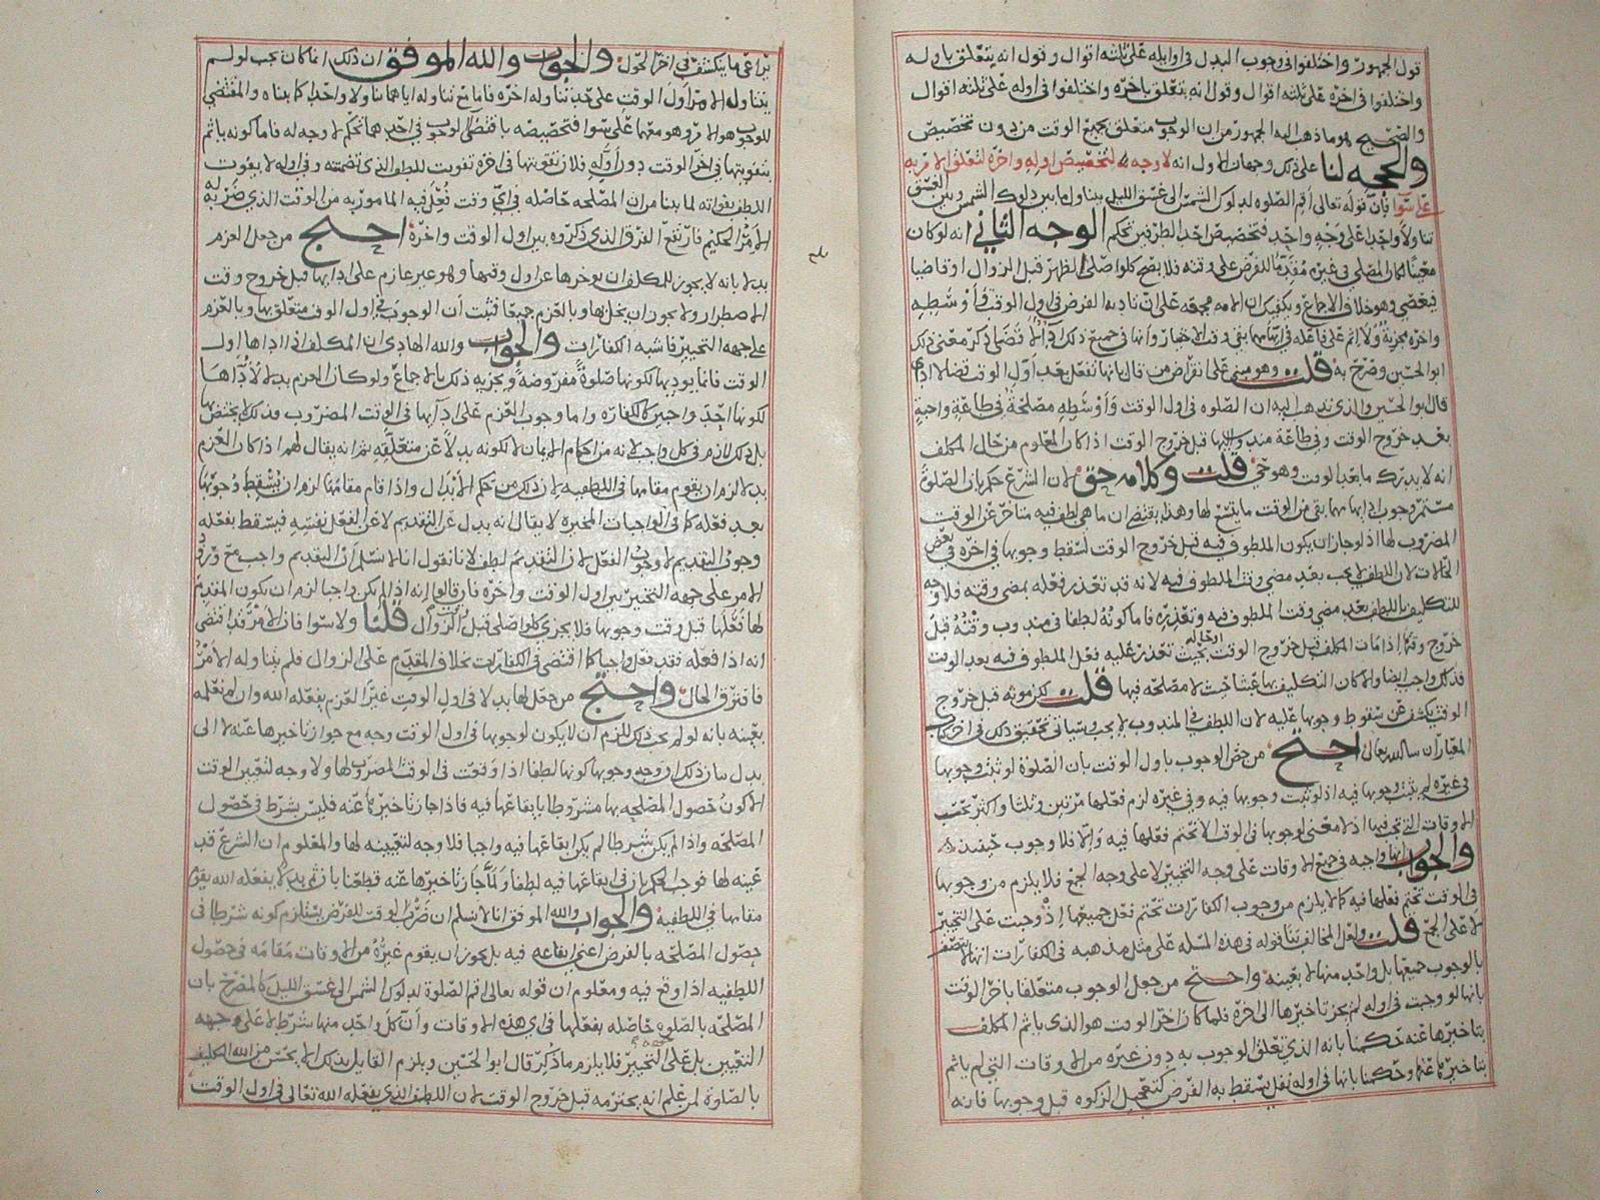 قول الجمهور واختلفوا في وجوب البدل في اوايله على ثلثه اقوال وقول انه يتعلق باوله
واختلفوا في اخره على ثلثه اقوال وقول انه يتعلق باخره واختلفوا في اوله على ثلثه اقوال
والصحيح هو ما ذهب اليه الجمهور من ان الوجوب متعلق بجميع الوقت من دون تخصيص
والحجه لنا على ذلك وجهان الاول انه لا وجه لتخصيص اوله واخره لتعلق الامر به
على سوا بان قوله تعالى اقم الصلوه لدلوك الشمس الى غسق الليل يتناول ما بين دلوك الشمس وبين الغسق
تناولا واحدا على وجه واحد فتخصيص احد الطرفين تحكم الوجه الثاني انه لو كان
معينا لكان المصلي في غيره مقدما للفرض على وقته فلا يصح كما لو صلى الظهر قبل الزوال او قاضيا
فيعصي وهو خلاف الاجماع ويكفيك ان الامه مجمعه على ان تاديه الفرض في اول الوقت واوسطه
واخره مجزية ولا اثم على فاعله في ايها مهما بقي وقت الاختيار وانها في جميع ذلك ادا لا قضا ذكر معنى ذلك
ابو الحسين وصرح به قلت وهو مبني على انقراض من قال بانها تفعل بعد اول الوقت قضا لا ادا
قال ابو الحسين والذي نذهب اليه ان الصلوه في اول الوقت واوسطه مصلحة في طاعة واجبة
بعد خروج الوقت وفي طاعة مندوب اليها قبل خروج الوقت اذا كان المعلوم من حال المكلف
انه لا يدرك ما بعد الوقت وهو حي قلت وكلامه حق لان الشرع حكم بان الصلوة
مستمر وجوب ادايها مهما بقي من الوقت ما يتسع لها وهذا يقتضي ان ما هي لطف فيه متاخر عن الوقت
المضروب لها اذ لو جاز ان يكون الملطوف فيه قبل خروج الوقت لسقط وجوبها في اخره في بعض
الحالات لان اللطف لا يجب بعد مضي وقت الملطوف فيه لانه قد تعذر فعله بمضي وقته فلا وجه
للتكليف باللطف بعد مضي وقت الملطوف فيه وتعذره فاما كونه لطفا في مندوب وقته قبل
خروج وقتها اذا مات المكلف قبل خروج الوقت بحيث تعذر عليه فعل الملطوف فيه بعد الوقت
فذلك واجب ايضا والا كان التكليف بها عبثا حيث لا مصلحه فيها قلت لكن موته قبل خروج
الوقت يكشف عن سقوط وجوبها عليه لان اللطف في المندوب لا يجب وسياتي تحقيق ذلك في اخر كتاب
المعيار ان شا الله تعالى احتج من خص الوجوب باول الوقت بان الصلوة لو ثبت وجوبها
في غيره لم يثبت وجوبها فيه اذ لو ثبت وجوبها فيه وفي غيره لزم فعلها مرتين وثلثا واكثر بحسب
الاوقات التي تجب فيها اذ لا معنى لوجوبها في الوقت الا تحتم فعلها فيه والا فلا وجوب حينئذ
والجواب انها واجبه في جميع الاوقات على وجه التخيير لا على وجه الجمع فلا يلزم من وجوبها
في الوقت تحتم فعلها فيه كما لا يلزم من وجوب الكفارات تحتم فعل جميعها اذ وجبت على التخيير
لا على الجمع قلت ولعل المخالف بنا قوله في هذه المسله على مثل مذهبه في الكفارات انها لا تتصف
بالوجوب جميعها بل واحد منها لا بعينه واحتج من جعل الوجوب متعلقا باخر الوقت
بانها لو وجبت في اوله لم يجز تاخيرها الى اخره فلما كان اخر الوقت هو الذي ياثم المكلف
بتاخيرها عنه حكمنا بانه الذي تعلق الوجوب به دون غيره من الاوقات التي لم ياثم
بتاخيرها عنها وحكمنا بانها في اوله نفل يسقط به الفرض كتعجيل الزكوه قبل وجوبها فانه
يراعى ما ينكشف في اخر الحول والجواب والله الموفق ان ذلك انما كان يجب لو لم
يتناول الامر اول الوقت على حد تناوله اخره فاما مع تناوله اياهما تناولا واحدا كما بيناه والمقتضي
للوجوب هو الامر وهو معهما على سوا فتخصيصه باقتضا الوجوب في احدهما تحكم لا وجه له فاما كونه ياثم
بتفويتها في اخر الوقت دون اوله فلان تفويتها في اخره تفويت للطف الذي تضمنته وفي اوله لا يفوت
اللطف بفواته لما بينا من ان المصلحه حاصله في اي وقت فعل فيه المامور به من الوقت الذي ضربه له
الامر الحكيم فارتفع الفرق الذي ذكروه بين اول الوقت واخره احتج من جعل العزم
بدلا بانه لا يجوز للمكلف ان يوخرها عن اول وقتها وهو غير عازم على ادايها قبل خروج وقت
الاضطرار ولا يجوز ان يخل بها وبالعزم جميعا فثبت ان الوجوب في اول الوقت متعلق بها وبالعزم
على جهه التخيير فاشبه الكفارات والجواب والله الهادي ان المكلف اذا اداها اول
الوقت فانما يوديها لكونها صلوة مفروضه ويجزيه ذلك بالاجماع ولو كان العزم بدلا لاداها
لكونها احد واجبين كالكفاره واما وجوب العزم على ادايها في الوقت المضروب فذلك لا يختص
بل ذلك لازم في كل واجب لانه من احكام الايمان لا لكونه بدلا عن متعلقه ثم انه يقال لهم اذا كان العزم
بدلا لزم ان يقوم مقامها في اللطفيه لان ذلك من حكم الابدال واذا قام مقامها لزم ان يسقط وجوبها
بعد فعله كما في الواجبات المخيرة لا يقال انه بدل عن التقديم لا عن الفعل نفسه فيسقط بفعله
وجوب التقديم لا وجوب الفعل لان التقديم لطف لانا نقول انا لا نسلم ان التقديم واجب مع ورود
الامر على جهه التخيير بين اول الوقت واخره فان قالوا انه اذا لم يكن واجبا لزم ان يكون المقدم
لها فعلها قبل وقت وجوبها فلا يجزي كما لو صلى قبل الزوال قلنا ولا سوا فان الامر قد اقتضى
انه اذا فعله فقد فعل واجبا كما اقتضى في الكفارات بخلاف المقدم على الزوال فلم يتناوله الامر
فافترق الحال واحتج من جعل لها بدلا في اول الوقت غير العزم يفعله الله وان لم نعلمه
بعينه بانه لو لم يجب ذلك للزم ان لا يكون لوجوبها في اول الوقت وجه مع جواز تاخيرها عنه لا الى
بدل بيان ذلك ان وجه وجوبها كونها لطفا اذا وقعت في الوقت المضروب لها ولا وجه لتعيين الوقت
الا كون حصول المصلحه بها مشروطا بايقاعها فيه فاذا جاز تاخيرها عنه فليس بشرط في حصول
المصلحه واذا لم يكن شرطا لم يكن ايقاعها فيه واجبا فلا وجه لتعيينه لها والمعلوم ان الشرع قد
عينه لها فوجب الحكم بان في ايقاعها فيه لطفا ولما جاز تاخيرها عنه قطعنا بان ثم بدلا يفعله الله يقوم
مقامها في اللطفيه والجواب والله الموفق انا لا نسلم ان ضرب الوقت للفرض يستلزم كونه شرطا في
حصول المصلحه بالفرض اعني ايقاعه فيه بل يجوز ان يقوم غيره من الاوقات مقامه في حصول
اللطفيه اذا وقع فيه ومعلوم ان قوله تعالى اقم الصلوة لدلوك الشمس الى غسق الليل كالمصرح بان
المصلحه بالصلوه حاصله بفعلها في اي هذه الاوقات وان كل واحد منها شرط لا على وجه
التعيين بل على التخيير فلا يلزم ما ذكر قال ابو الحسين ويلزم القايل بذلك الا يحسن من الله التكليف
بالصلوة لمن علم انه يخترمه قبل خروج الوقت لان اللطف الذي يفعله الله تعالى في اول الوقت